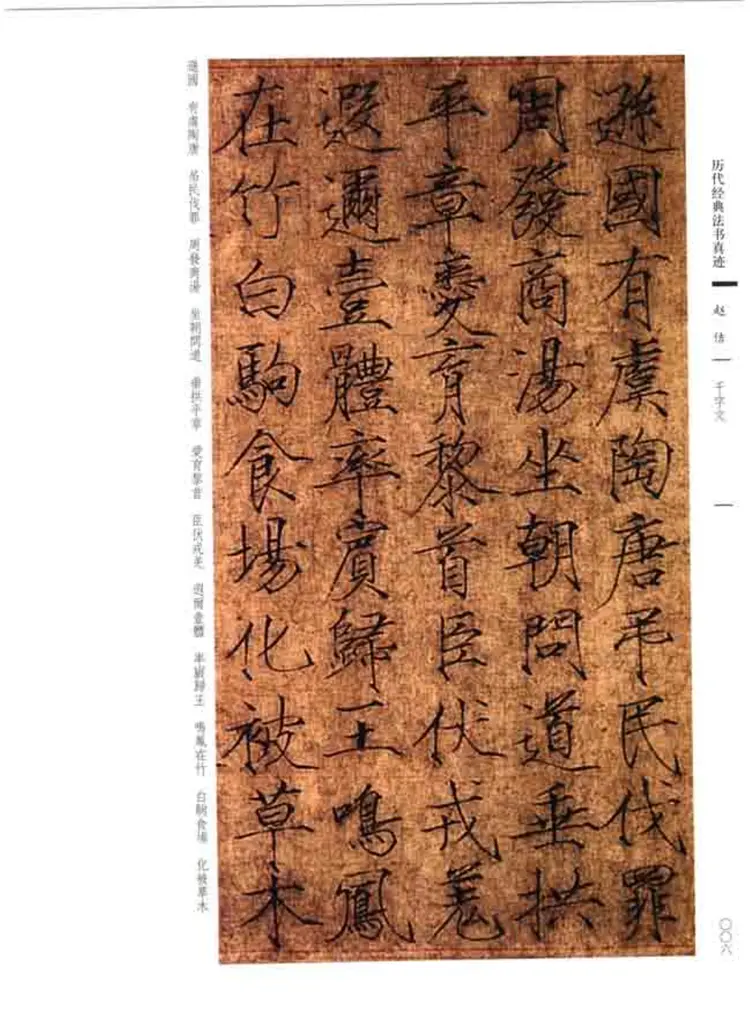 历代经典法书真迹
赵佶
千字文
〇〇六
遜國有虞陶唐弔民伐罪
周發商湯坐朝問道垂拱
平章愛育黎首臣伏戎羌
遐邇壹體率賓歸王鳴鳳
在竹白駒食場化被草木
遜國 有虞陶唐 吊民伐罪 周發商湯 坐朝問道 垂拱平章 愛育黎首 臣伏戎羌 遐邇壹體 率賓歸王 鳴鳳在竹 白駒食場 化被草木